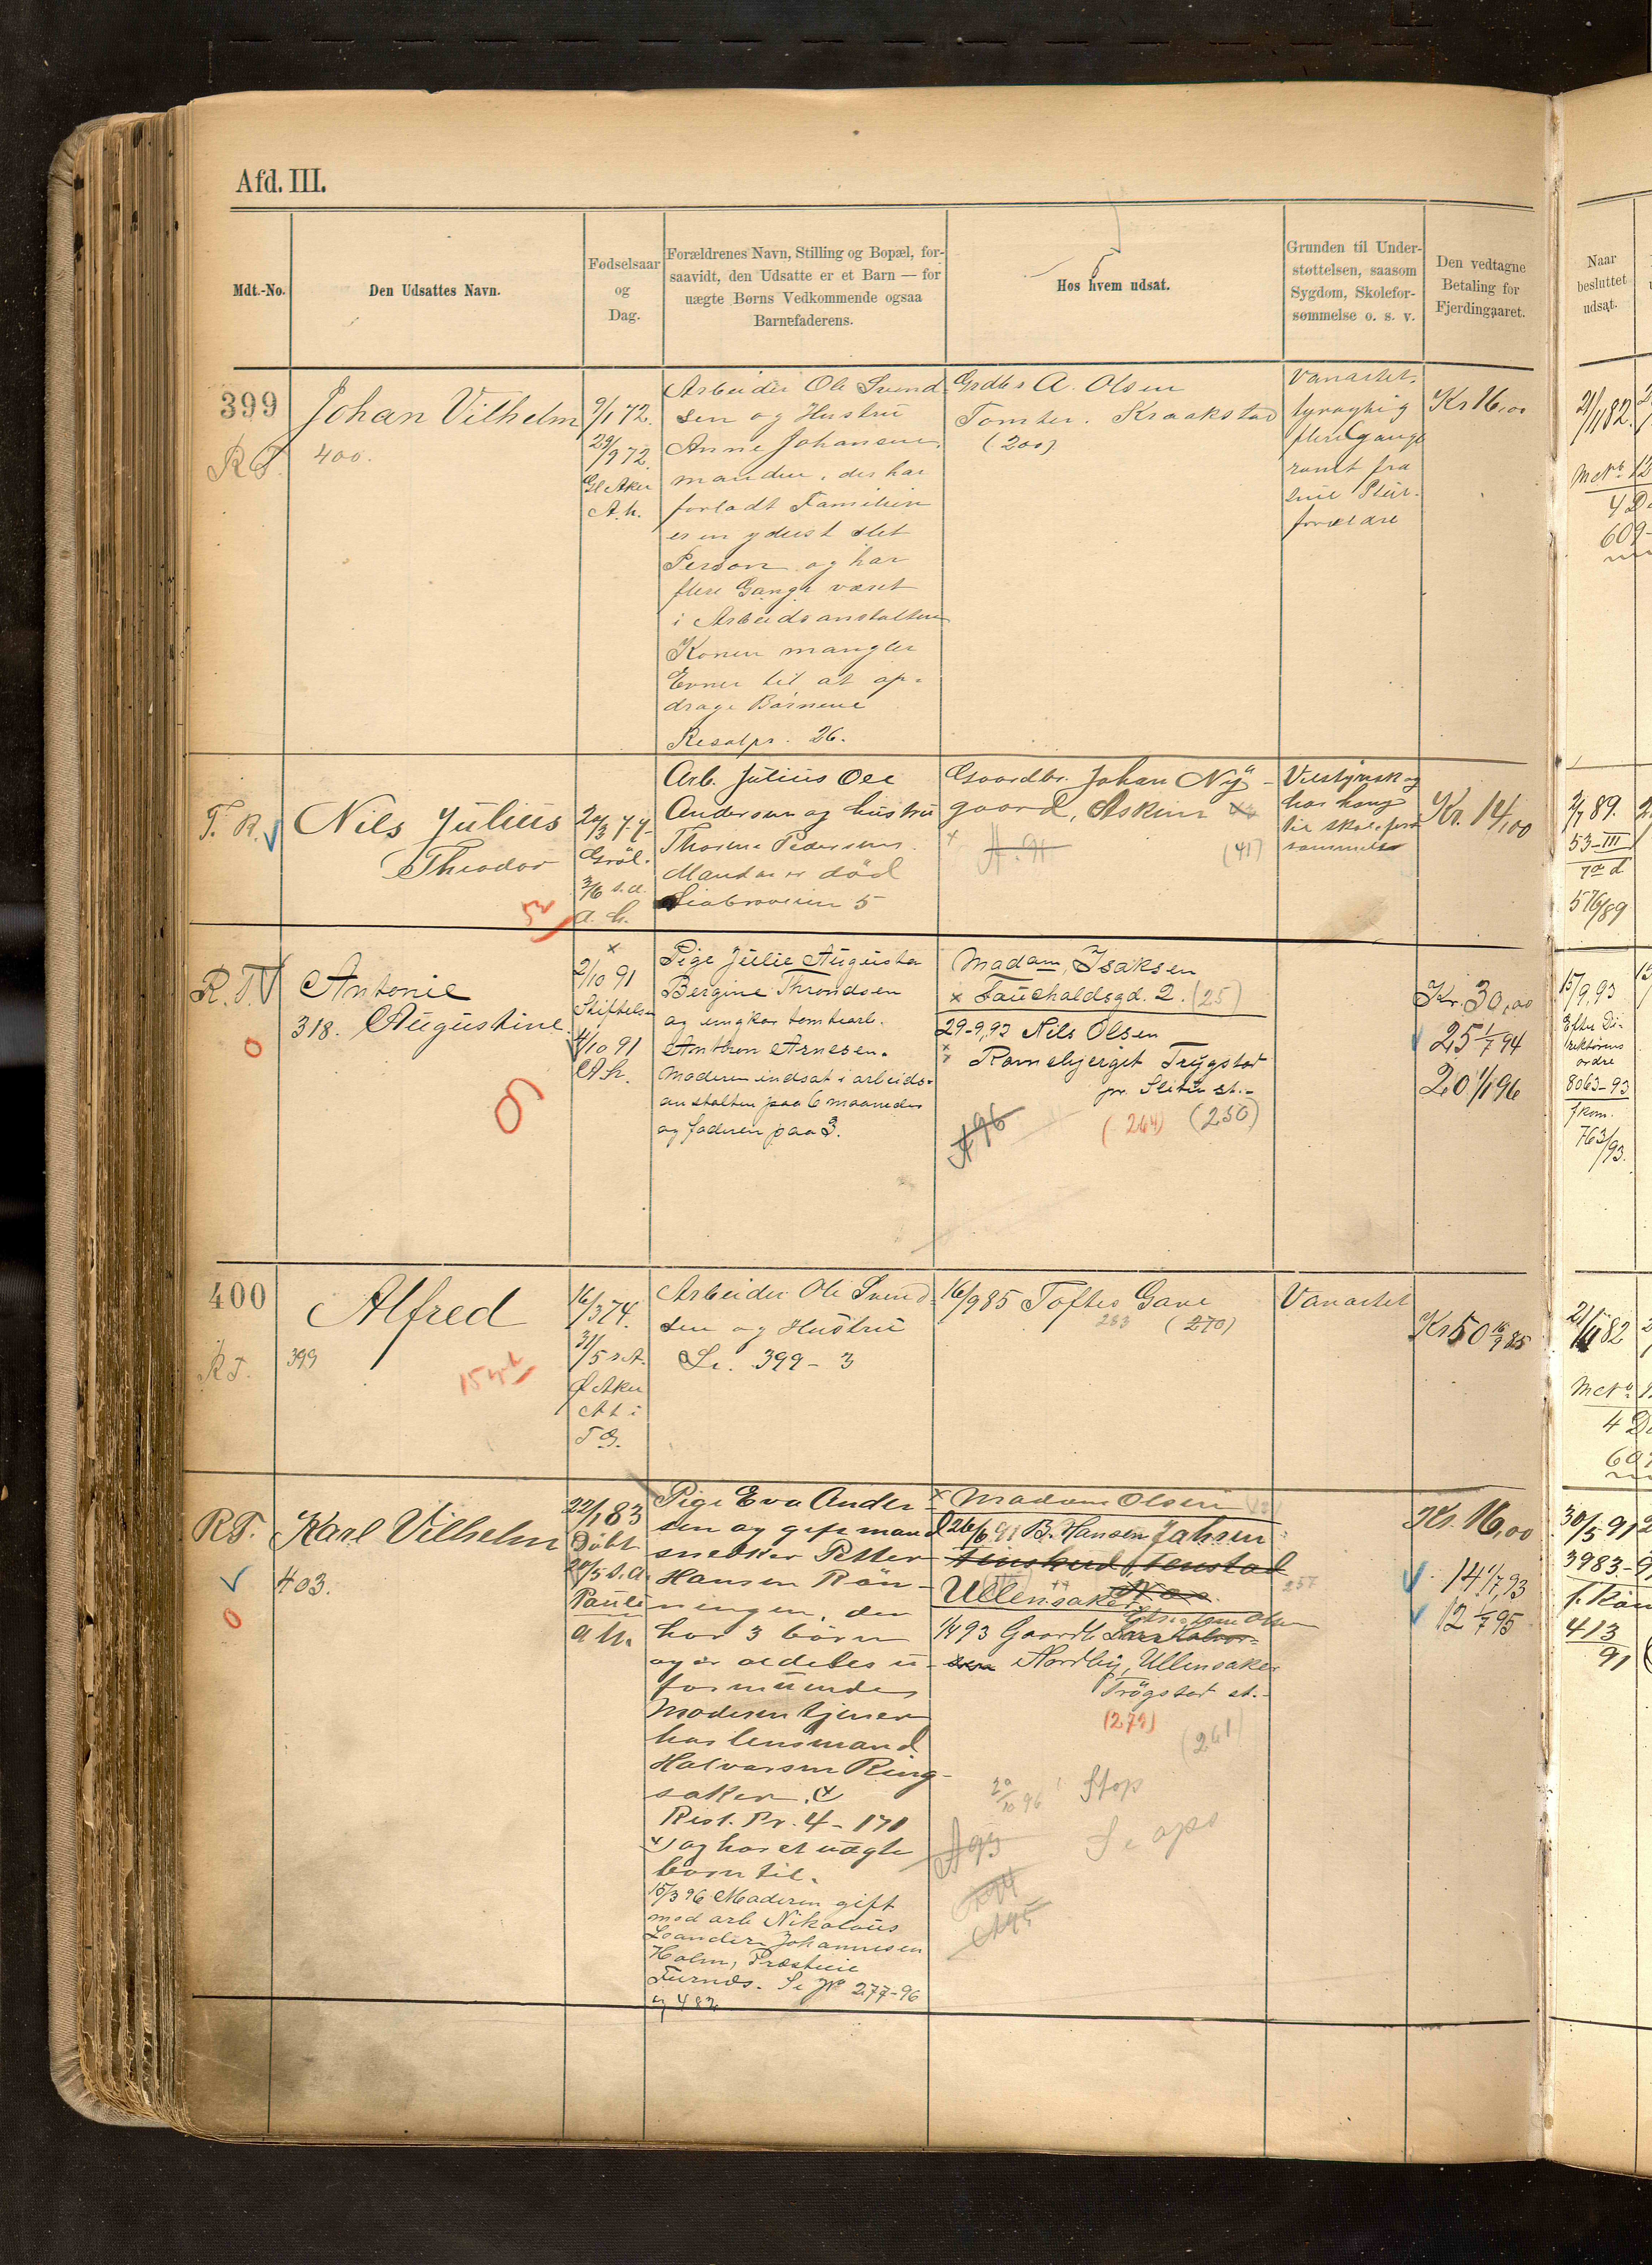 Afd. III.
Mdt.-No.
Den Udsattes Navn.
Fødselsaar
og
Dag.
Forældrenes Navn, Stilling og Bopæl, for-
saavidt, den Udsatte er et Barn — for
uægte Børns Vedkommende ogsaa
Barnefaderens.
Hos hvem udsat.
Grunden til Under-
støttelsen, saasom
Sygdom, Skolefor-
sømmelse o. s. v.
Den vedtagne
Betaling for
Fjerdingaaret.
Naar
besluttet
udsat.
399
R T.
Johan Vilhelm
400.
9/1 72.
29/9 72.
Gl Aker
A. h.
Arbeider Ole Svend-
sen og Hustru
Anne Johansen,
manden, der har
forladt Familien
er en yderst slet
Person og har
flere Gange været
i Arbeidsanstalten
Konen mangler
Evner til at op-
drage Børnene
Resolpr. 26.
Grdbr A. Olsen
Tomter. Kraakstad
(200)
Vanartet,
tyvagtig
flere Gange
rømt fra
sine Pleie-
forældre
Kr 16,00
21/11 82.
4 D
609-
T. R.
Nils Julius
Theodor
20/3 77
Grøl.
3/6 s.a.
a. h.
Arb. Julius Ole
Andersen og hustru
Thorine Pedersen.
Manden er død
5
Gaardbr. Johan Ny-
gaard, Askim
A. 91
(41)
Vilstyrisk og
har hang
til skolefor-
sømmelse
Kr. 14,00
2/7 89.
53-III
576/89
R. T.
Antonie
318. Augustine
0
2/10 91
Stiftelsen
4/10 91
A h.
Pige Julie Augusta
Bergine Throndsen
og ungkar tomtearb.
Anthon Arnesen.
Moderen indsat i arbeids-
anstalten paa 6 maaneder
og faderen paa 3.
Madam Isaksen
x Fauchaldsgd. 2. (25)
29-9,93 Nils Olsen
Ramebjerget Trygstad
pr. Sliten st.-
(264) (250)
A 96
Kr. 30,00
25 1/7 94
20 1/1 96
15/9,93
Efter Di-
rektørens
ordre
8063-93
f kom.
763/93.
400
R T.
Alfred
399
16/3 74.
31/5 s.A.
Gl Aker
A h i
T G.
Arbeider Ole Svend-
sen og Hustru
Se. 399 - 3
16/9 85 Toftes Gave
283 (270)
Vanartet
Kr 50 16/9 85
21/11 82
4 D
RT.
0
Karl Vilhelm
403.
22/1 83
Døbt
20/5 s.a.
Pauli
a h.
Pige Eva Ander-
sen og gift mand
snedker Petter
Hansen Røn-
ningen, der
har 3 børn
og er aldeles u-
formuende
Moderen tjener
hos lensmand
Halvorsen Ring-
saker. x)
Rist. Pr. 4 - 171
x) og har et uægte
barn til.
15/3 96 Moderen gift
med arb Nikolaus
Leander Johannesen
Holm, Præsteie
Furnes. Se No 277-96
og 482
x Madam Olsen
26/6 91 B. Hansen Jahren
Ullensaker
1/4 93 Gaardb.
Nordby, Ullensaker
Trøgstad st.-
(279)
(261)
20/10 96 Stop
A 93
257
Kr. 16,00
14 1/7,93
12 1/7 95
30/5 91
3983-9
413
91